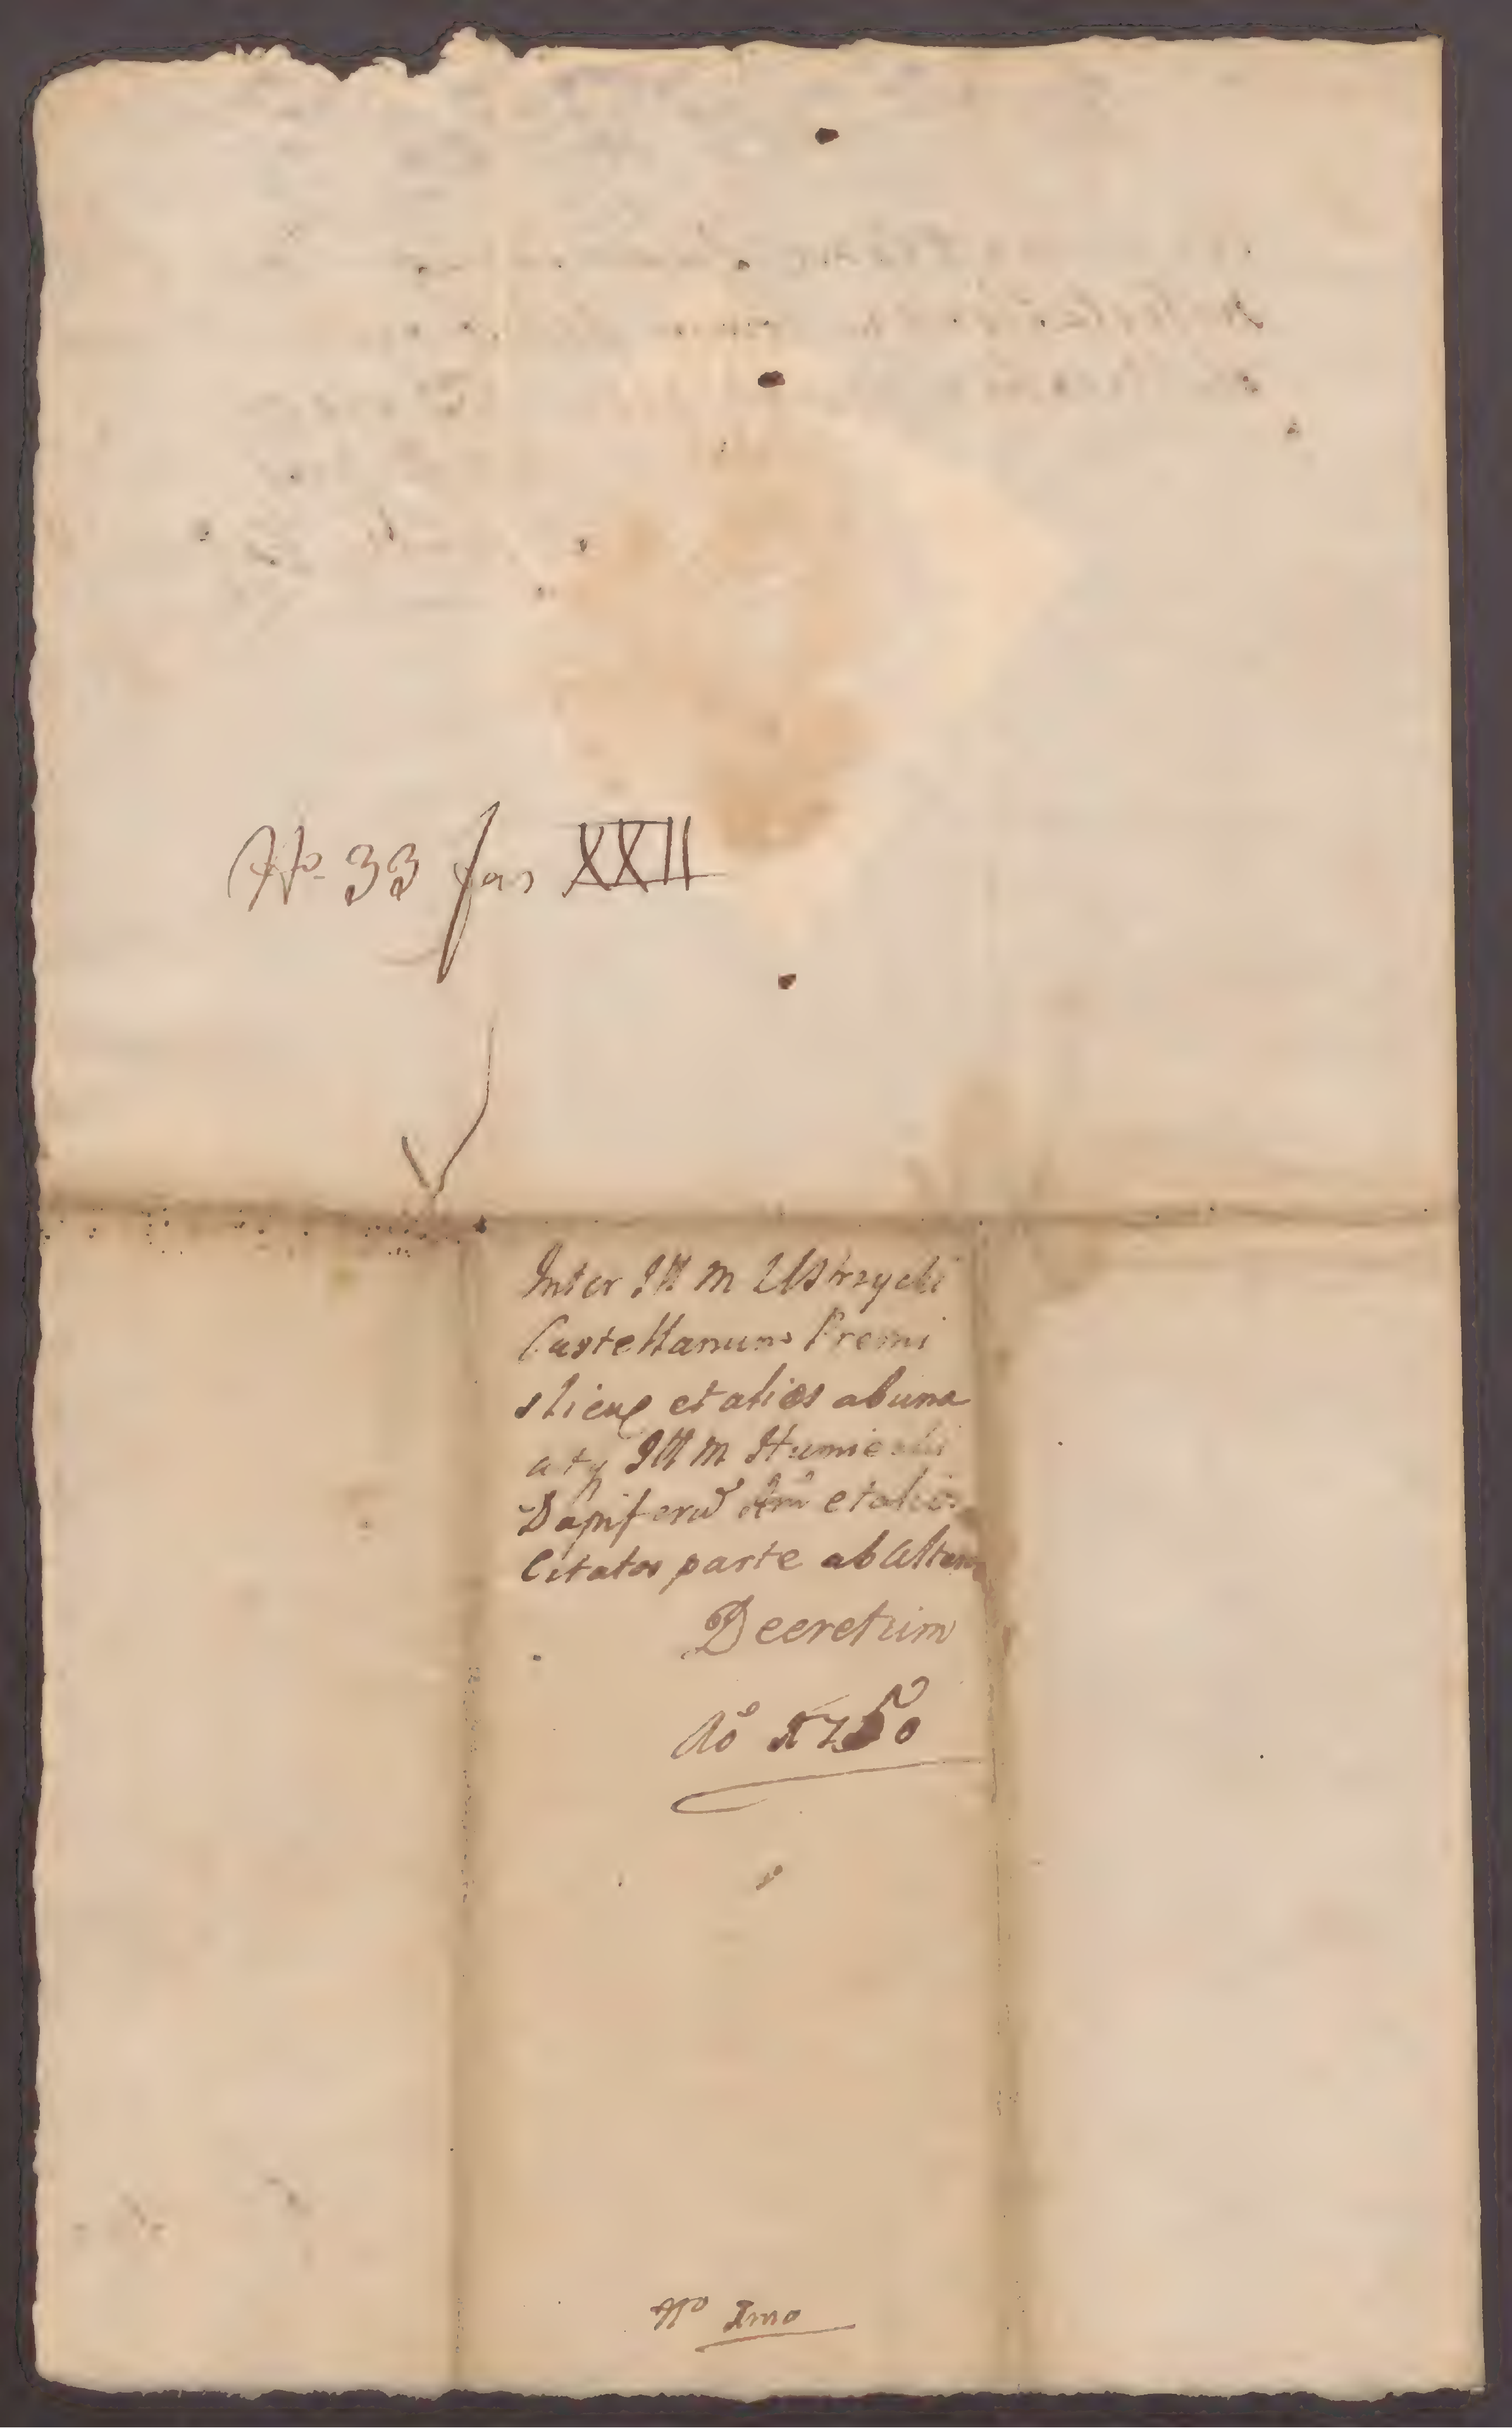 No 33 fas XXII
Inter Ill M Ustrzycki
Castellanum Premi
sliens et alios ab una
atq Ill M Humiecki
Dapiferū et alios
Citatos parte ab altera
Decretum
Aō 1750
No Imo